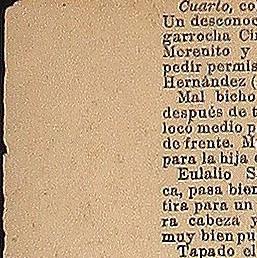 Cuarto, co
Un desconoc
garrocha Cir
Morenito y
pedir permis
Hernández (
Mal bicho
después de t
locó medio p
de frente. M
para la hija d
Eulalio S
ca, pasa bien
tira para un
ra cabeza y
muy bien pu
Tapado el